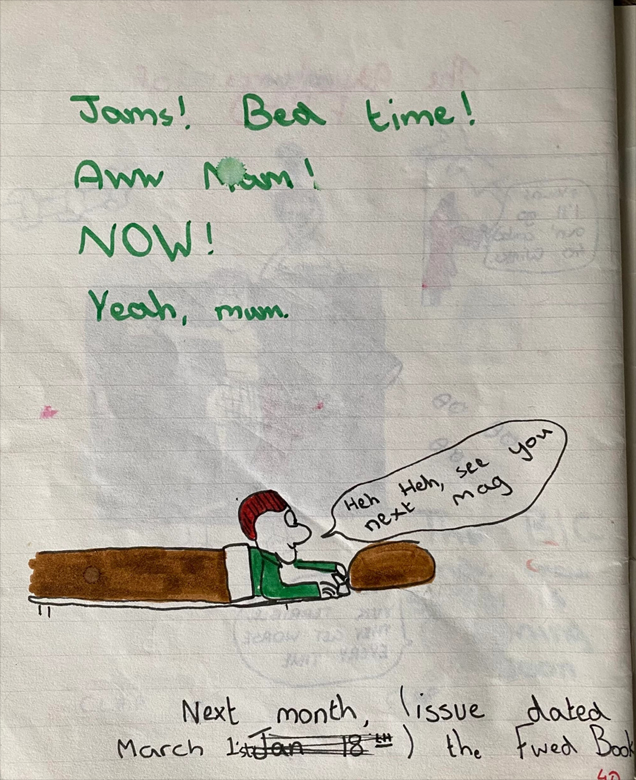 Jams! Bed time!
Aww Mam!
NOW!
Yeah, mum.
Heh Heh, see you
next mag
Next month, (issue dated
March 1st Jan 18th) the Fwed Book